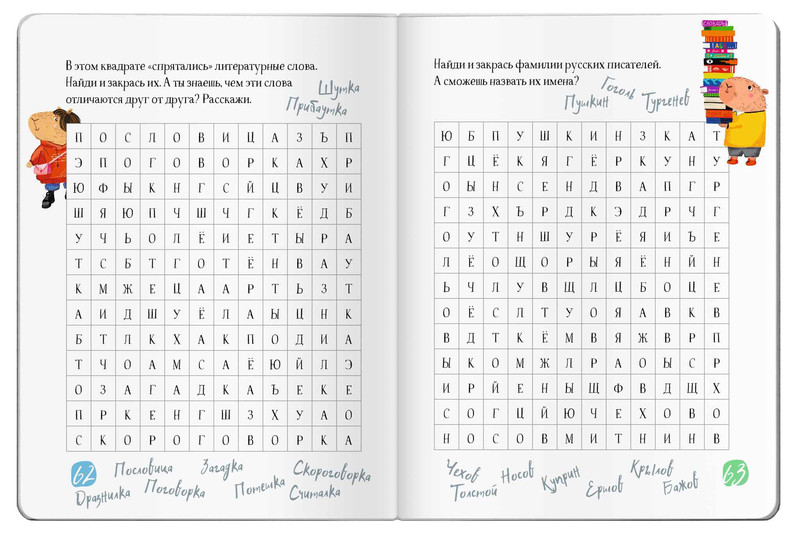 В этом квадрате «спрятались» литературные слова.
Найди и закрась их. А ты знаешь, чем эти слова
отличаются друг от друга? Расскажи.
Шутка
Прибаутка
П О С Л О В И Ц А З Ъ П
Э П О Г О В О Р К А Х Р
Ю Ф Ы К Н Г С Й Ц В У И
Ш Я Ю П Ч Ш Ч Г К Ё Д Б
У Ч Ь О Л Ё И Е Т Ы Р А
Т С Б Т Г О Т Ё Н В А У
К М Ж Е Ц А А Р Т Ь З Т
А И Д Ш У Ё Л А Ы Ц Н К
Б Т Л К Х А К П О Д И А
Т Ч О А М С А Ё Ю Й Л Э
О З А Г А Д К А Ъ Е К Е
П Р К Е Н Г Ш З Х У А О
С К О Р О Г О В О Р К А
62
Пословица Загадка Скороговорка
Дразнилка Поговорка Потешка Считалка
Найди и закрась фамилии русских писателей.
А сможешь назвать их имена?
Гоголь
Пушкин Тургенев
СЛОВАРЬ
Ю Б П У Ш К И Н З К А Т
Г Ц Ё К Я Г Ё Р К У Н У
О Ы Н С Е Н Д В А П Г Р
Г З Х Ъ Р Д К Э Д Р Ч Г
О У Т Н Ш У Р Ё Я И Ъ Е
Л Ё О Щ О Р Ы Я Ё Н Й Н
Ь Ч Л У В Щ Л Ц Б О Ц Е
О Ё С Л Т У О Я А В К В
В Д Т К Ё М В Я Ж В Р П
Ы К О М Ж Л Р А О Ы С Р
И Р Й Е Н Ы Щ Ф В Д Щ Х
С О Г Ц Й Ю Ч Е Х О В О
Н О С О В М И Т Н И Н В
Чехов Носов Куприн Крылов
Толстой Ершов Бажов
63